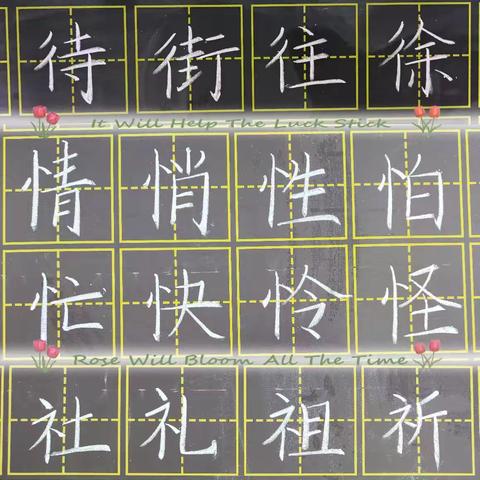 待街往徐
It Will Help The Luck Stick
情悄性怕
忙快怜怪
Rose Will Bloom All The Time
社礼祖祈